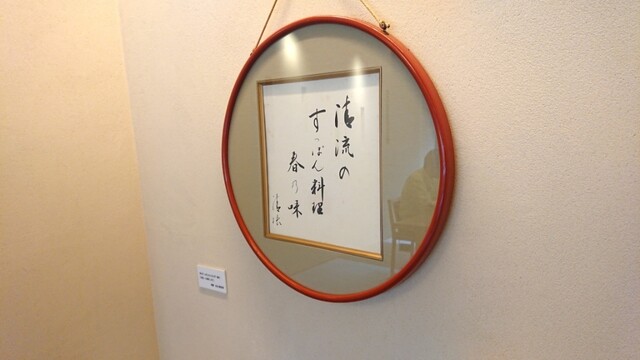 清流の
すっぽん料理
春の味